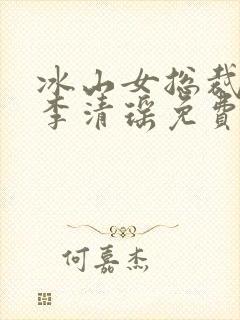 冰山女总裁
李清瑶免費
何嘉杰